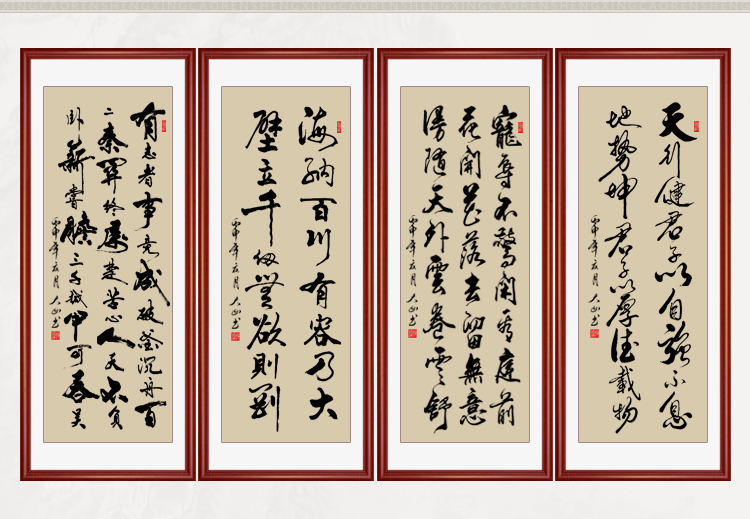 天行健君子以自强不息
地势坤君子以厚德載物
寵辱不驚閑看庭前
花開花落去留無意
漫随天外雲卷雲舒
海納百川有容乃大
壁立千仞無欲則剛
有志者事竟成破釜沉舟百
二秦関終属楚苦心人天不負
卧薪嘗膽三千越甲可吞吴